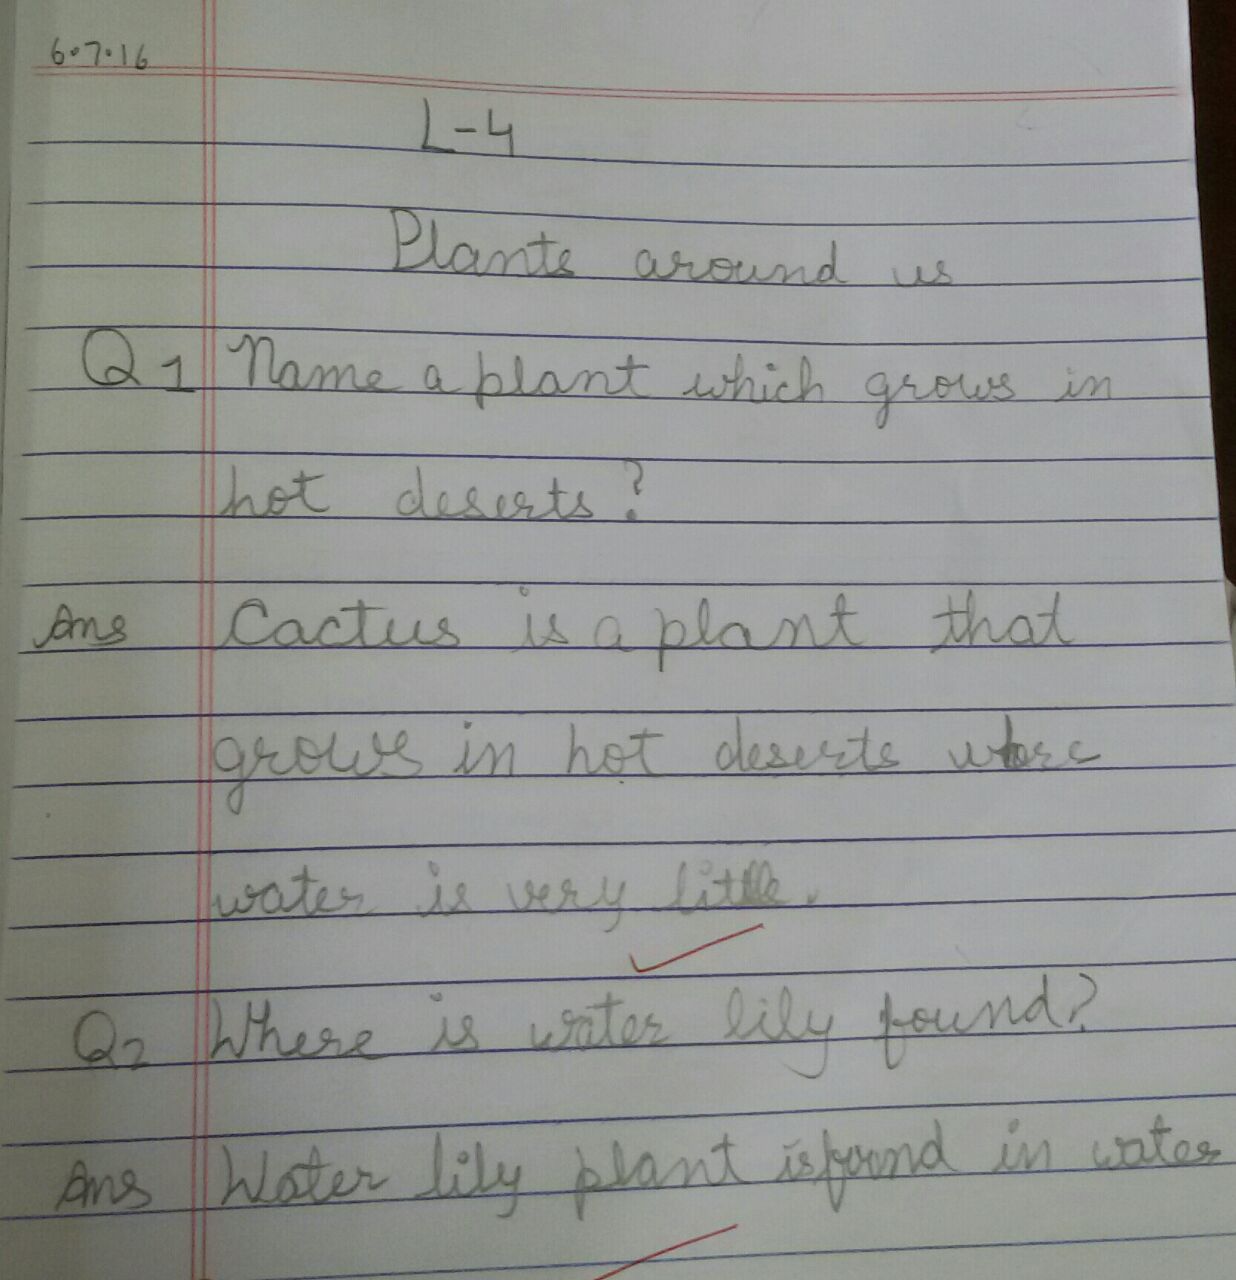 6.7.16
L-4
Plants around us
Q1 Name a plant which grows in
hot deserts?
Ans Cactus is a plant that
grows in hot deserts where
water is very little.
Q2 Where is water lily found?
Ans Water lily plant is found in water